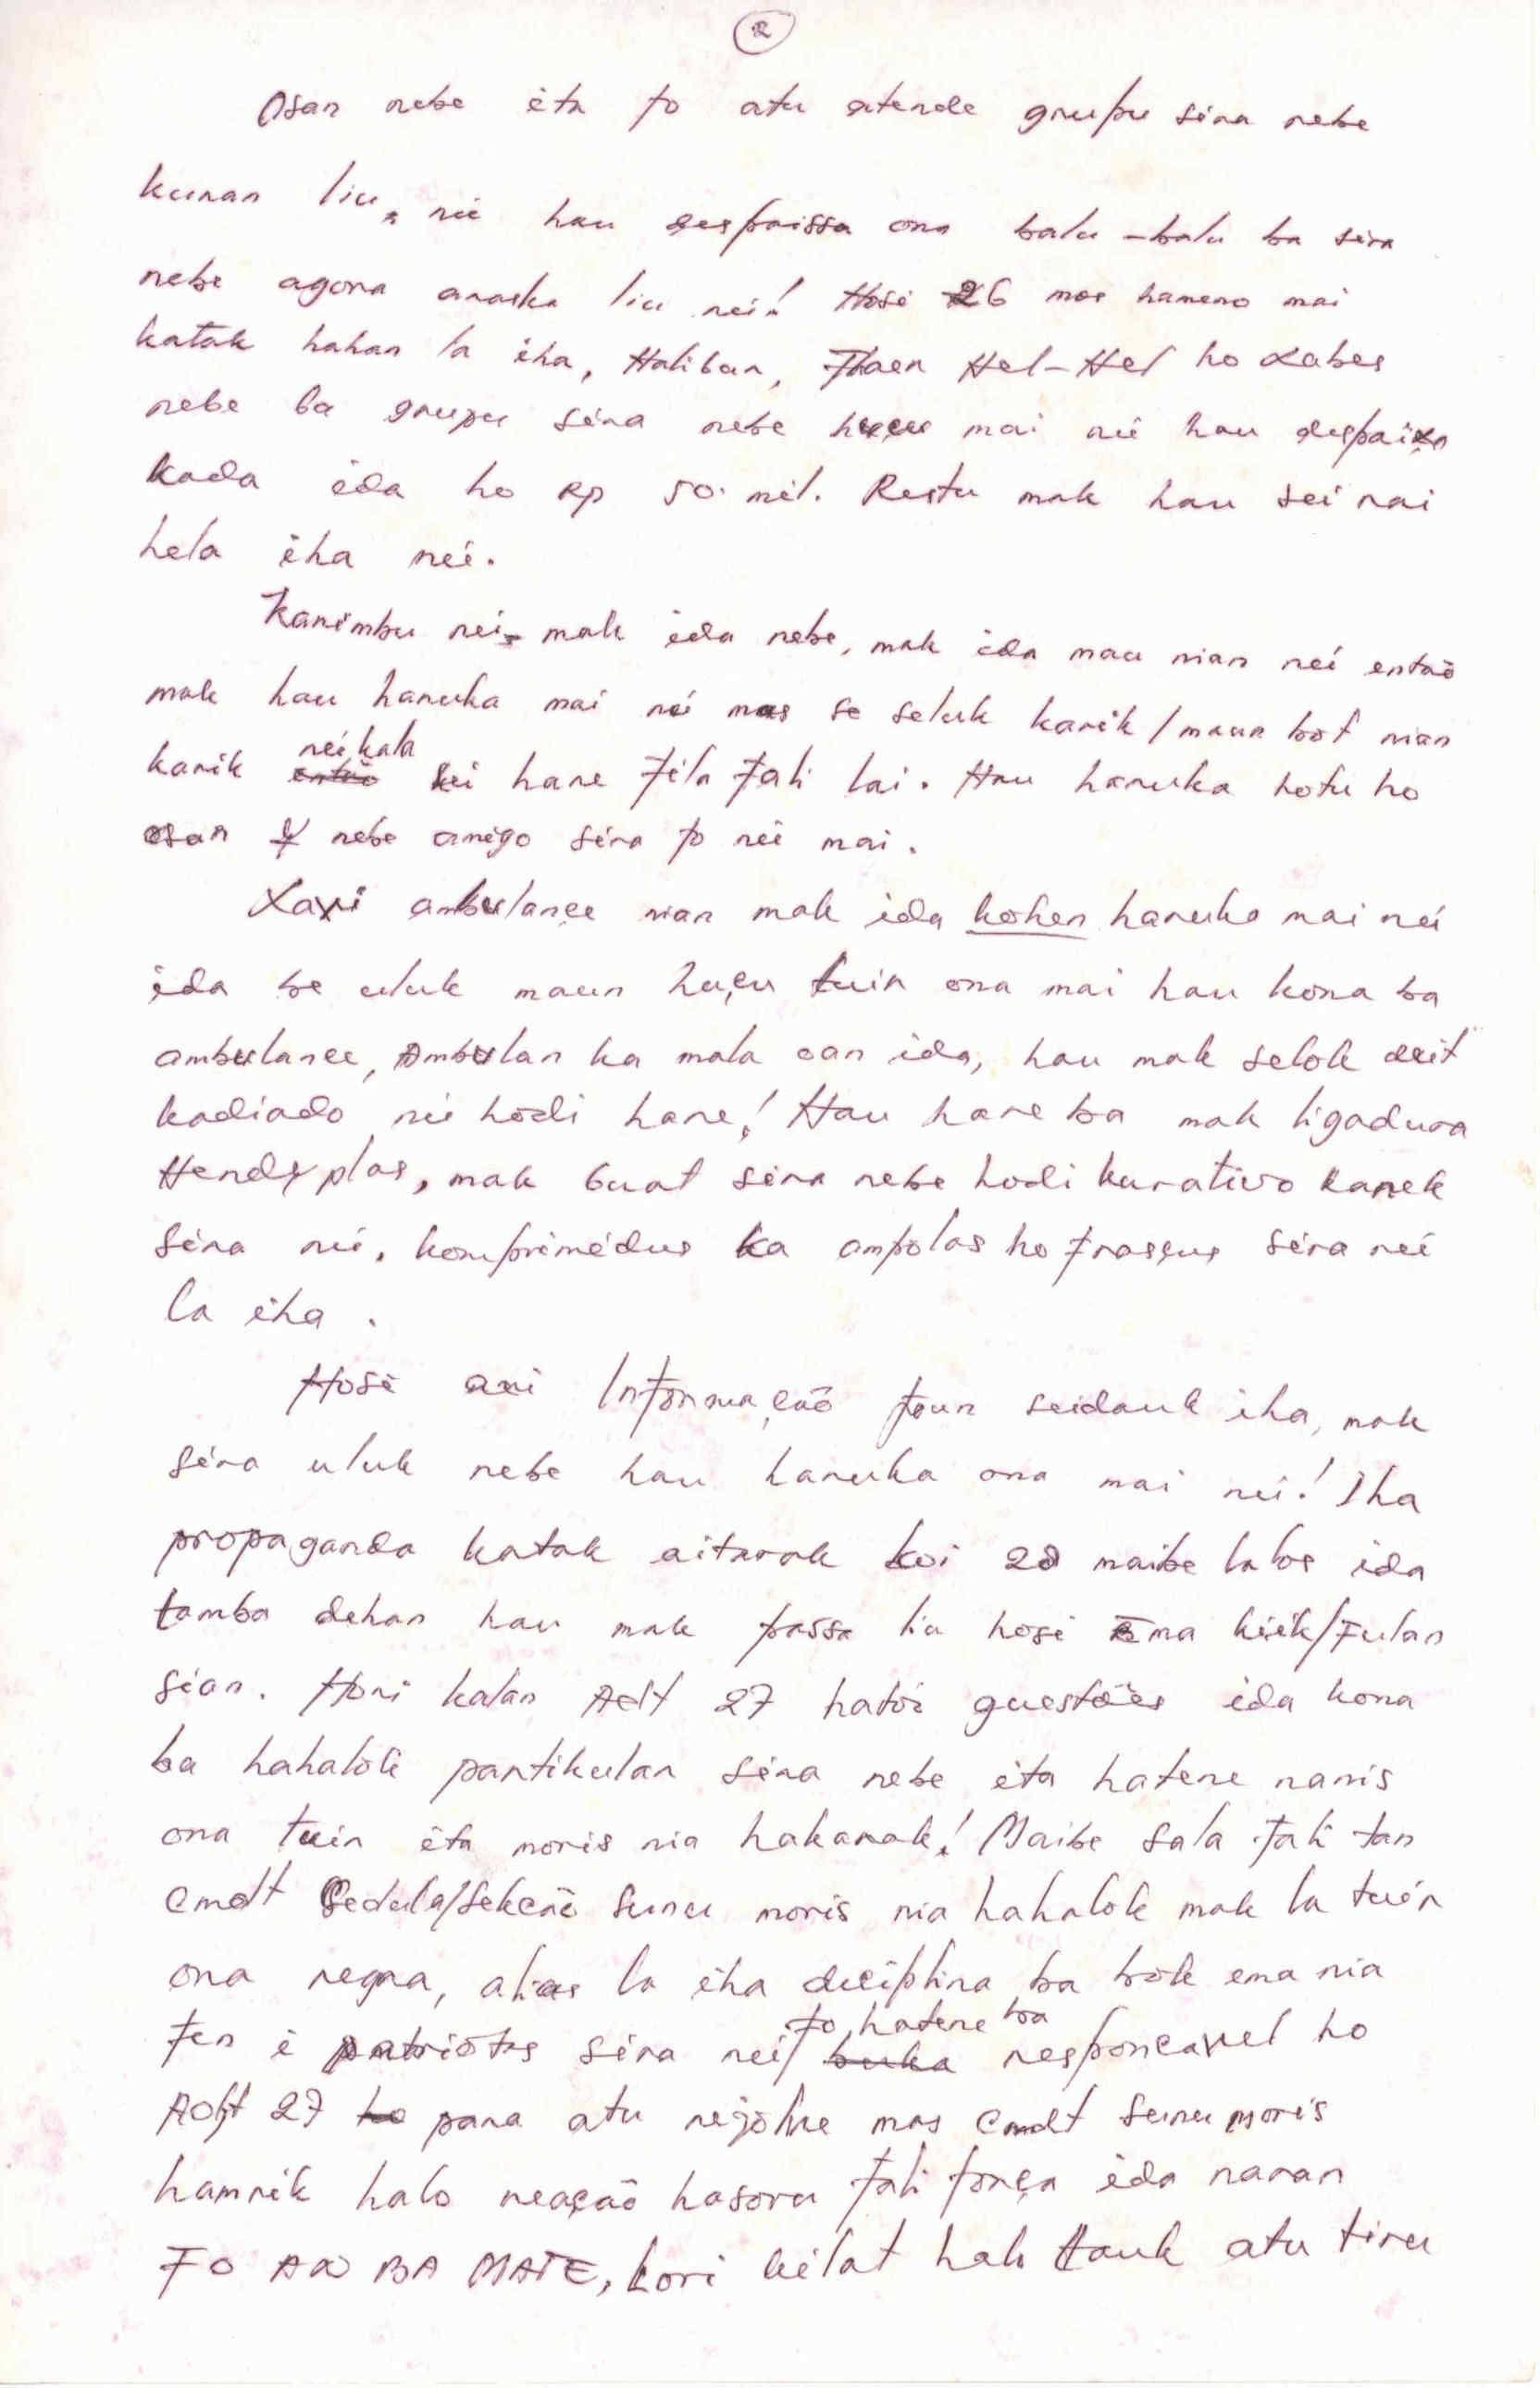 2
Osan nebe ita fo atu atende grupu sira nebe
kuran liu, nii hau despaissa ona balu-balu ba sira
nebe agora araska liu nei! Hosi 26 mos hameno mai
katak hahan la iha, Haliban, Fhaen Hel-Hel ho Labes
nebe ba grupu sira nebe huçu mai nii hau despaixa
kada ida ho Rp 50. mil. Restu mak hau sei rai
hela iha nei.
Karimbu nei mak ida nebe, mak ida mau nian nei entaõ
mak hau haruka mai nei mas se seluk karik/maun bot nian
karik nei kala sei hare fila fali lai. Hau haruka hotu ho
osan nebe amigo sira fo nei mai.
Laxi ambulance nian mak ida kohen haruka mai nei
ida be uluk maun huçu tuir ona mai hau kona ba
ambulance, Ambulan ka mala oan ida, hau mak selok deit
kadiado nii hodi hare! Hau hare ba mak ligadura
Hendyplas, mak buat sira nebe hodi kurativo kanek
sira nii. komprimidus ka ampolas ho frasçus sira nei
la iha.
Hosi ari Informaçaõ foun seidauk iha, mak
sira uluk nebe hau haruka ona mai nei! Iha
propaganda katak aitarak koi 20 maibe lalos ida
tamba dehan hau mak passa lia hosi ema kiik/fulan
sian. Hori kalan Adt 27 hatoi questões ida kona
ba hahalok partikular sira nebe ita hatene nanis
ona tuir ita moris nia hakarak! Maibe sala fali tan
Cmdt Sedula/sekcaõ sunu moris nia hahalok mak la tuir
ona regra, alias la iha diciplina ba bok ema nia
fen i patriotas sira nei/ fo hatene ba responcavel ho
Adjt 27 para atu rejolve mas Cmdt sunu moris
hamrik halo reaçaõ hasoru fali força ida naran
FO AN BA MATE, Lori kilat hali tauk atu tiru